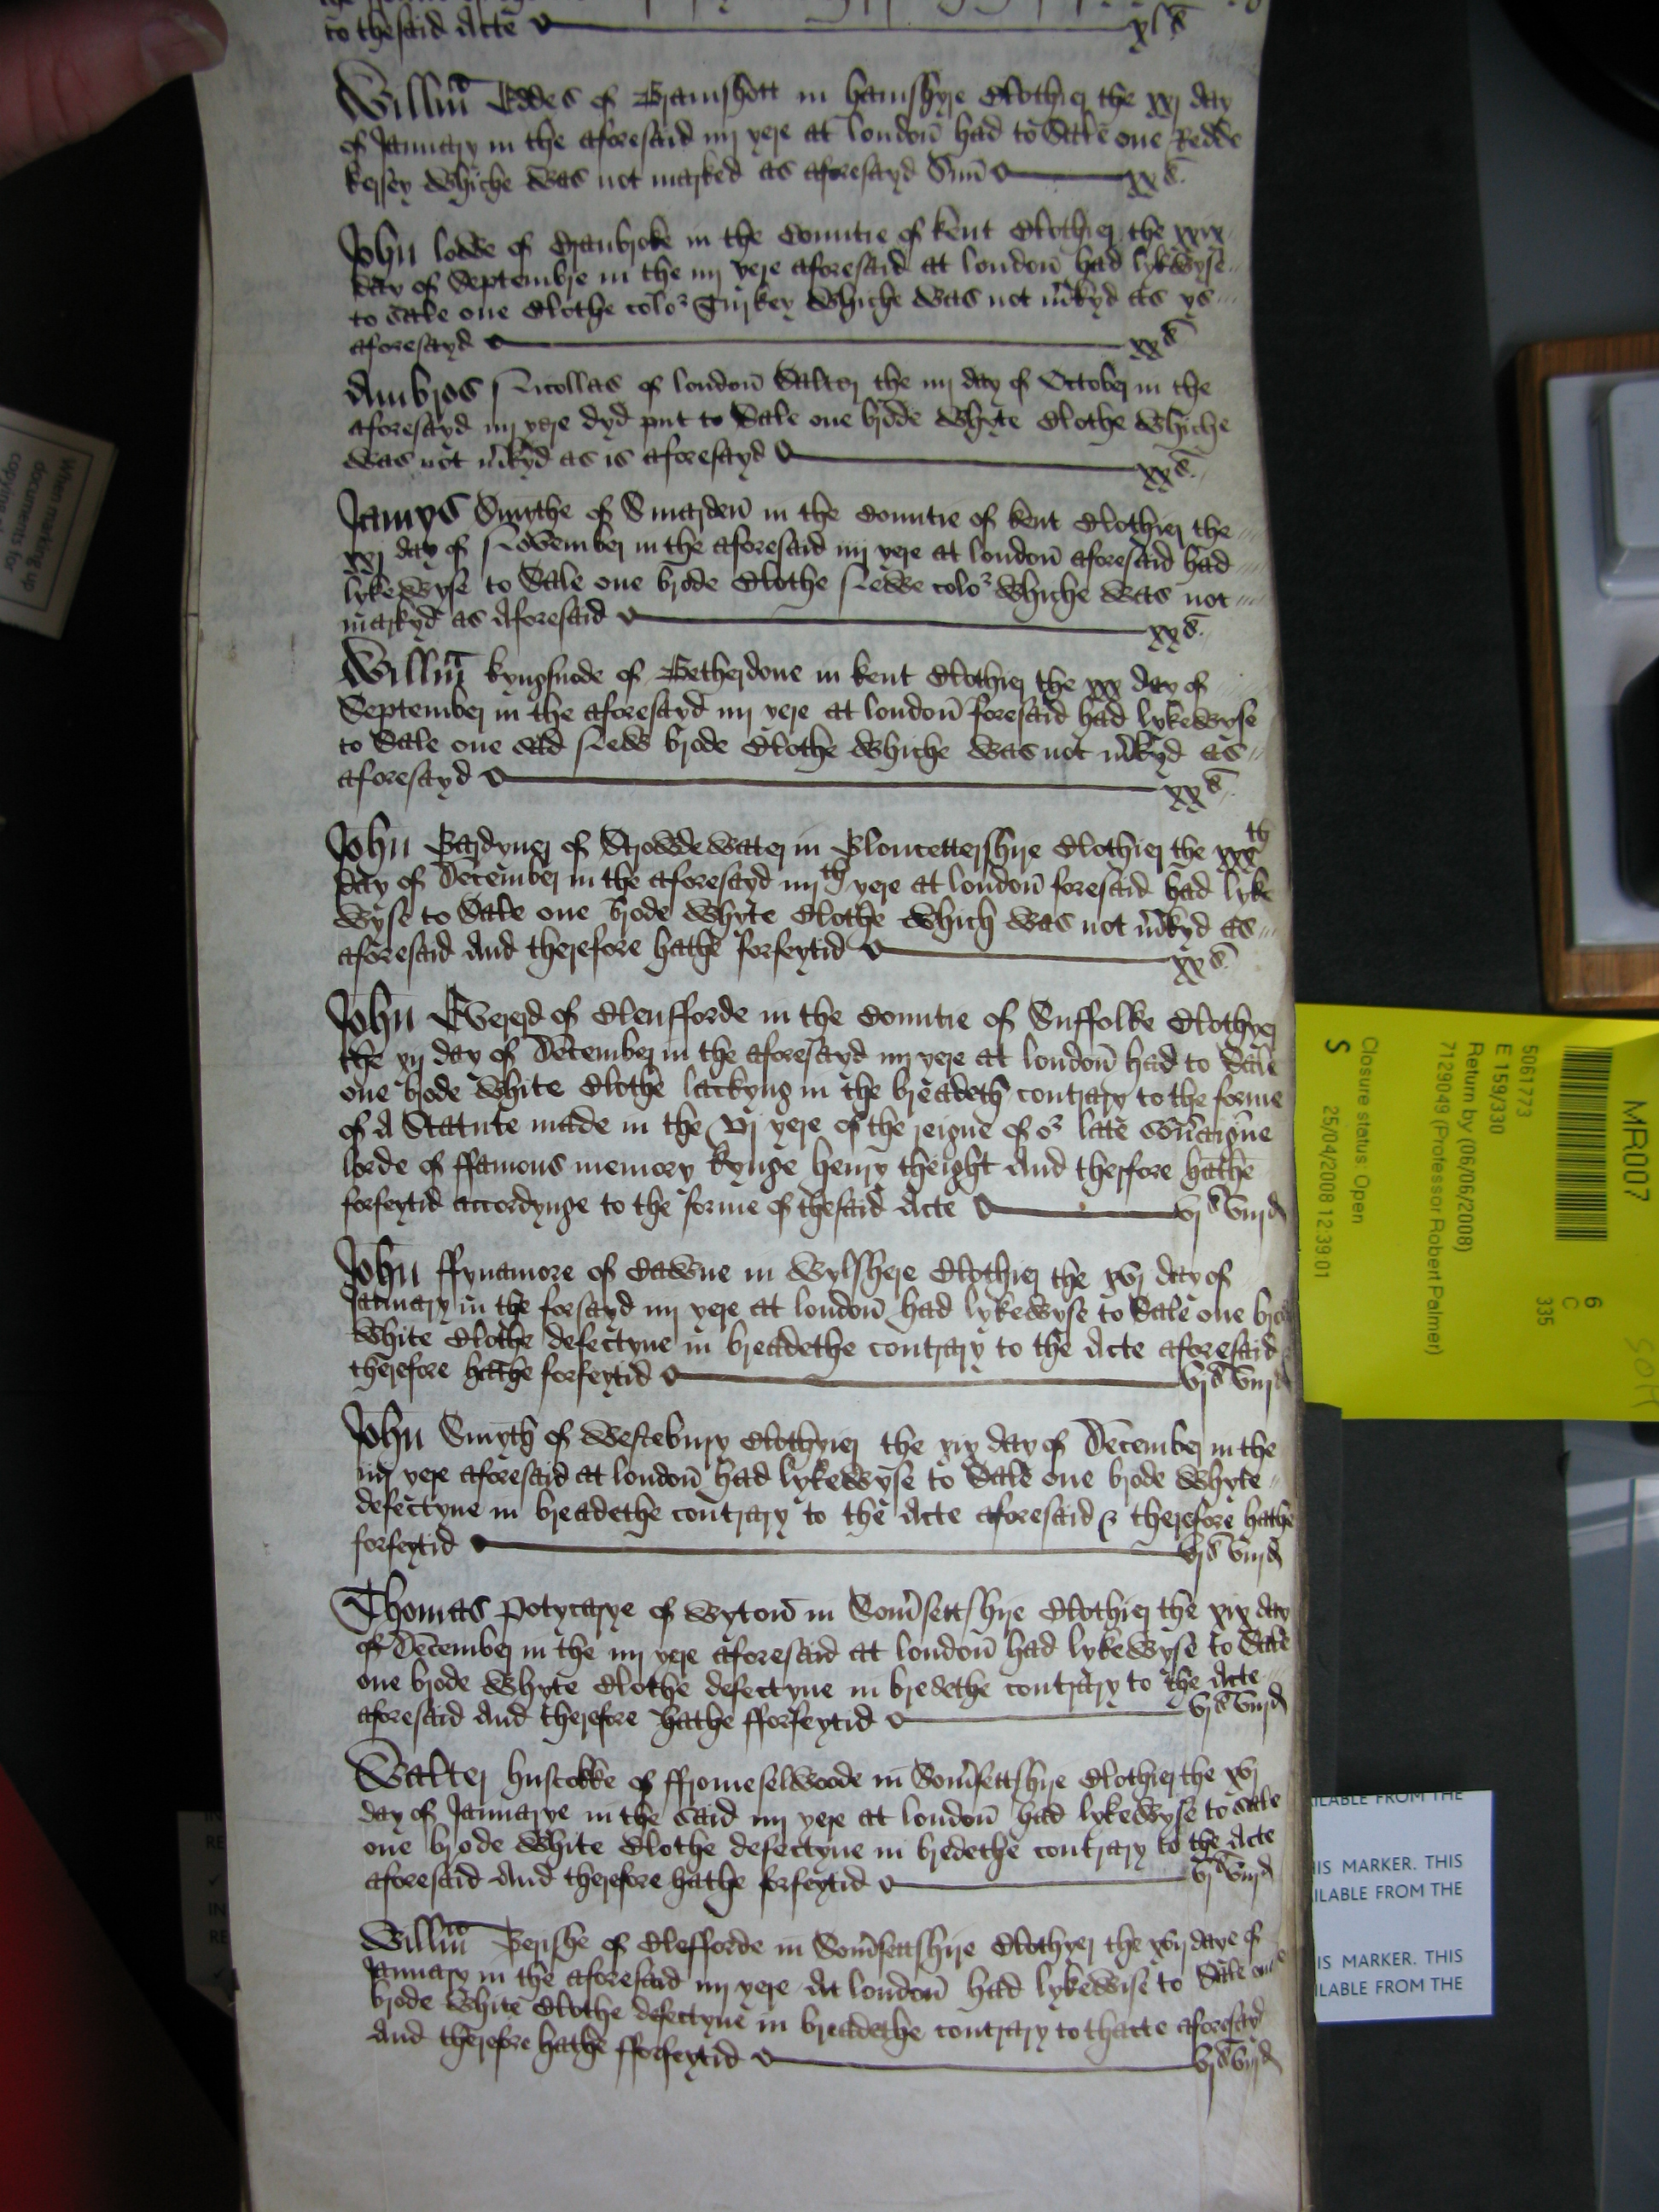 to thesaid Acte xl s
Willm Eddes of Bramshott in hamshyre Clothier the xxj day
of January in the aforesaid iiij yere at london had to Sale one Redde
kersey whiche was not marked as aforesayd Sum xx s.
John lodde of Cranbroke in the Countie of kent Clothier the xxix
day of Septembre in the iiij yere aforesaid at london had lykwyse
to sale one Clothe color Turkey whiche was not mkyd as ys
aforesayd xx s
Ambros Nicollas of london Salter the iiij day of October in the
aforesayd iiij yere dyd put to Sale one brode Whyte Clothe Whiche
was not mkyd as is aforesayd xx s.
Jamys Smythe of Smarden in the Countie of kent Clothier the
xxj day of November in the aforesaid iiij yere at london aforesaid had
lykewyse to Sale one brode Clothe Newe color whiche was not
markyd as Aforesaid xx s.
Willm kyngsnode of Betherdone in kent Clothier the xxx day of
September in the aforesayd iiij yere at london foresaid had lykewyse
to Sale one sad New brode Clothe Whiche was not mkyd as
aforesayd xx s.
John Gardyner of Strowdewater in Gloucettershyre Clothier the xxxth
day of December in the aforesayd iiijth yere at london foresaid had lyke
wyse to Sale one brode Whyte Clothe which was not mkyd as
aforesaid And therefore hathe forfeytid xx s.
John Evererd of Clenfforde in the Countie of Suffolke Clothyer
the xij day of December in the aforesayd iiij yere at london had to Sale
one brode white Clothe lackyng in the breadeth contrary to the forme
of A Statute made in the vj yere of the reigne of or late soveraigne
lorde of ffamous memory kynge henry theight And therfore hathe
forfeytid accordynge to the forme of thesaid Acte vj s viij d
John ffynamore of Cawne in Wylshere Clothier the xvj day of
January in the forsayd iiij yere at london had lykewyse to Sale one brode
White Clothe defectyue in breadethe contrary to the Acte aforesaid
therefore hathe forfeytid vj s viij d
John Smyth of Westebury Clothyer the xix day of December in the
iiij yere aforesaid at london had lykewyse to Sale one brode Whyte
defectyue in breadethe contrary to the Acte aforesaid & therefore hathe
forfeytid vj s viij d
Thomas Potycarye of Wyton in Somsettshyre Clothier the xix day
of December in the iiij yere aforesaid at london had lykewyse to Sale
one brode Whyte Clothe defectyue in bredethe contrary to the Acte
aforesaid And therefore hathe fforfeytid vj s viij d
Walter huscokke of ffromeselwoode in Somsettshyre Clothier the xvj
day of Januarye in the said iiij yere at london had lykewyse to sale
one brode White Clothe defectyue in bredethe contrary to the Acte
aforesaid And therefore hathe forfeytid vj s viij d
Willm Gerishe of Clefforde in Somsettshyre Clothyer the xvij daye of
January in the aforesaid iiij yere At london had lykewise to Sale one
brode White Clothe defectyue in breadethe contrary to thacte aforesayd
And therefore hathe fforfeytid vj s viij d
MR007
5061773
E 159/330
Return by (06/06/2008)
7129049 (Professor Robert Palmer)
Closure status: Open
S 25/04/2008 12:39:01
6
C
335
When marking up
documents for
ILABLE FROM THE
IS MARKER. THIS
ILABLE FROM THE
IS MARKER. THIS
ILABLE FROM THE